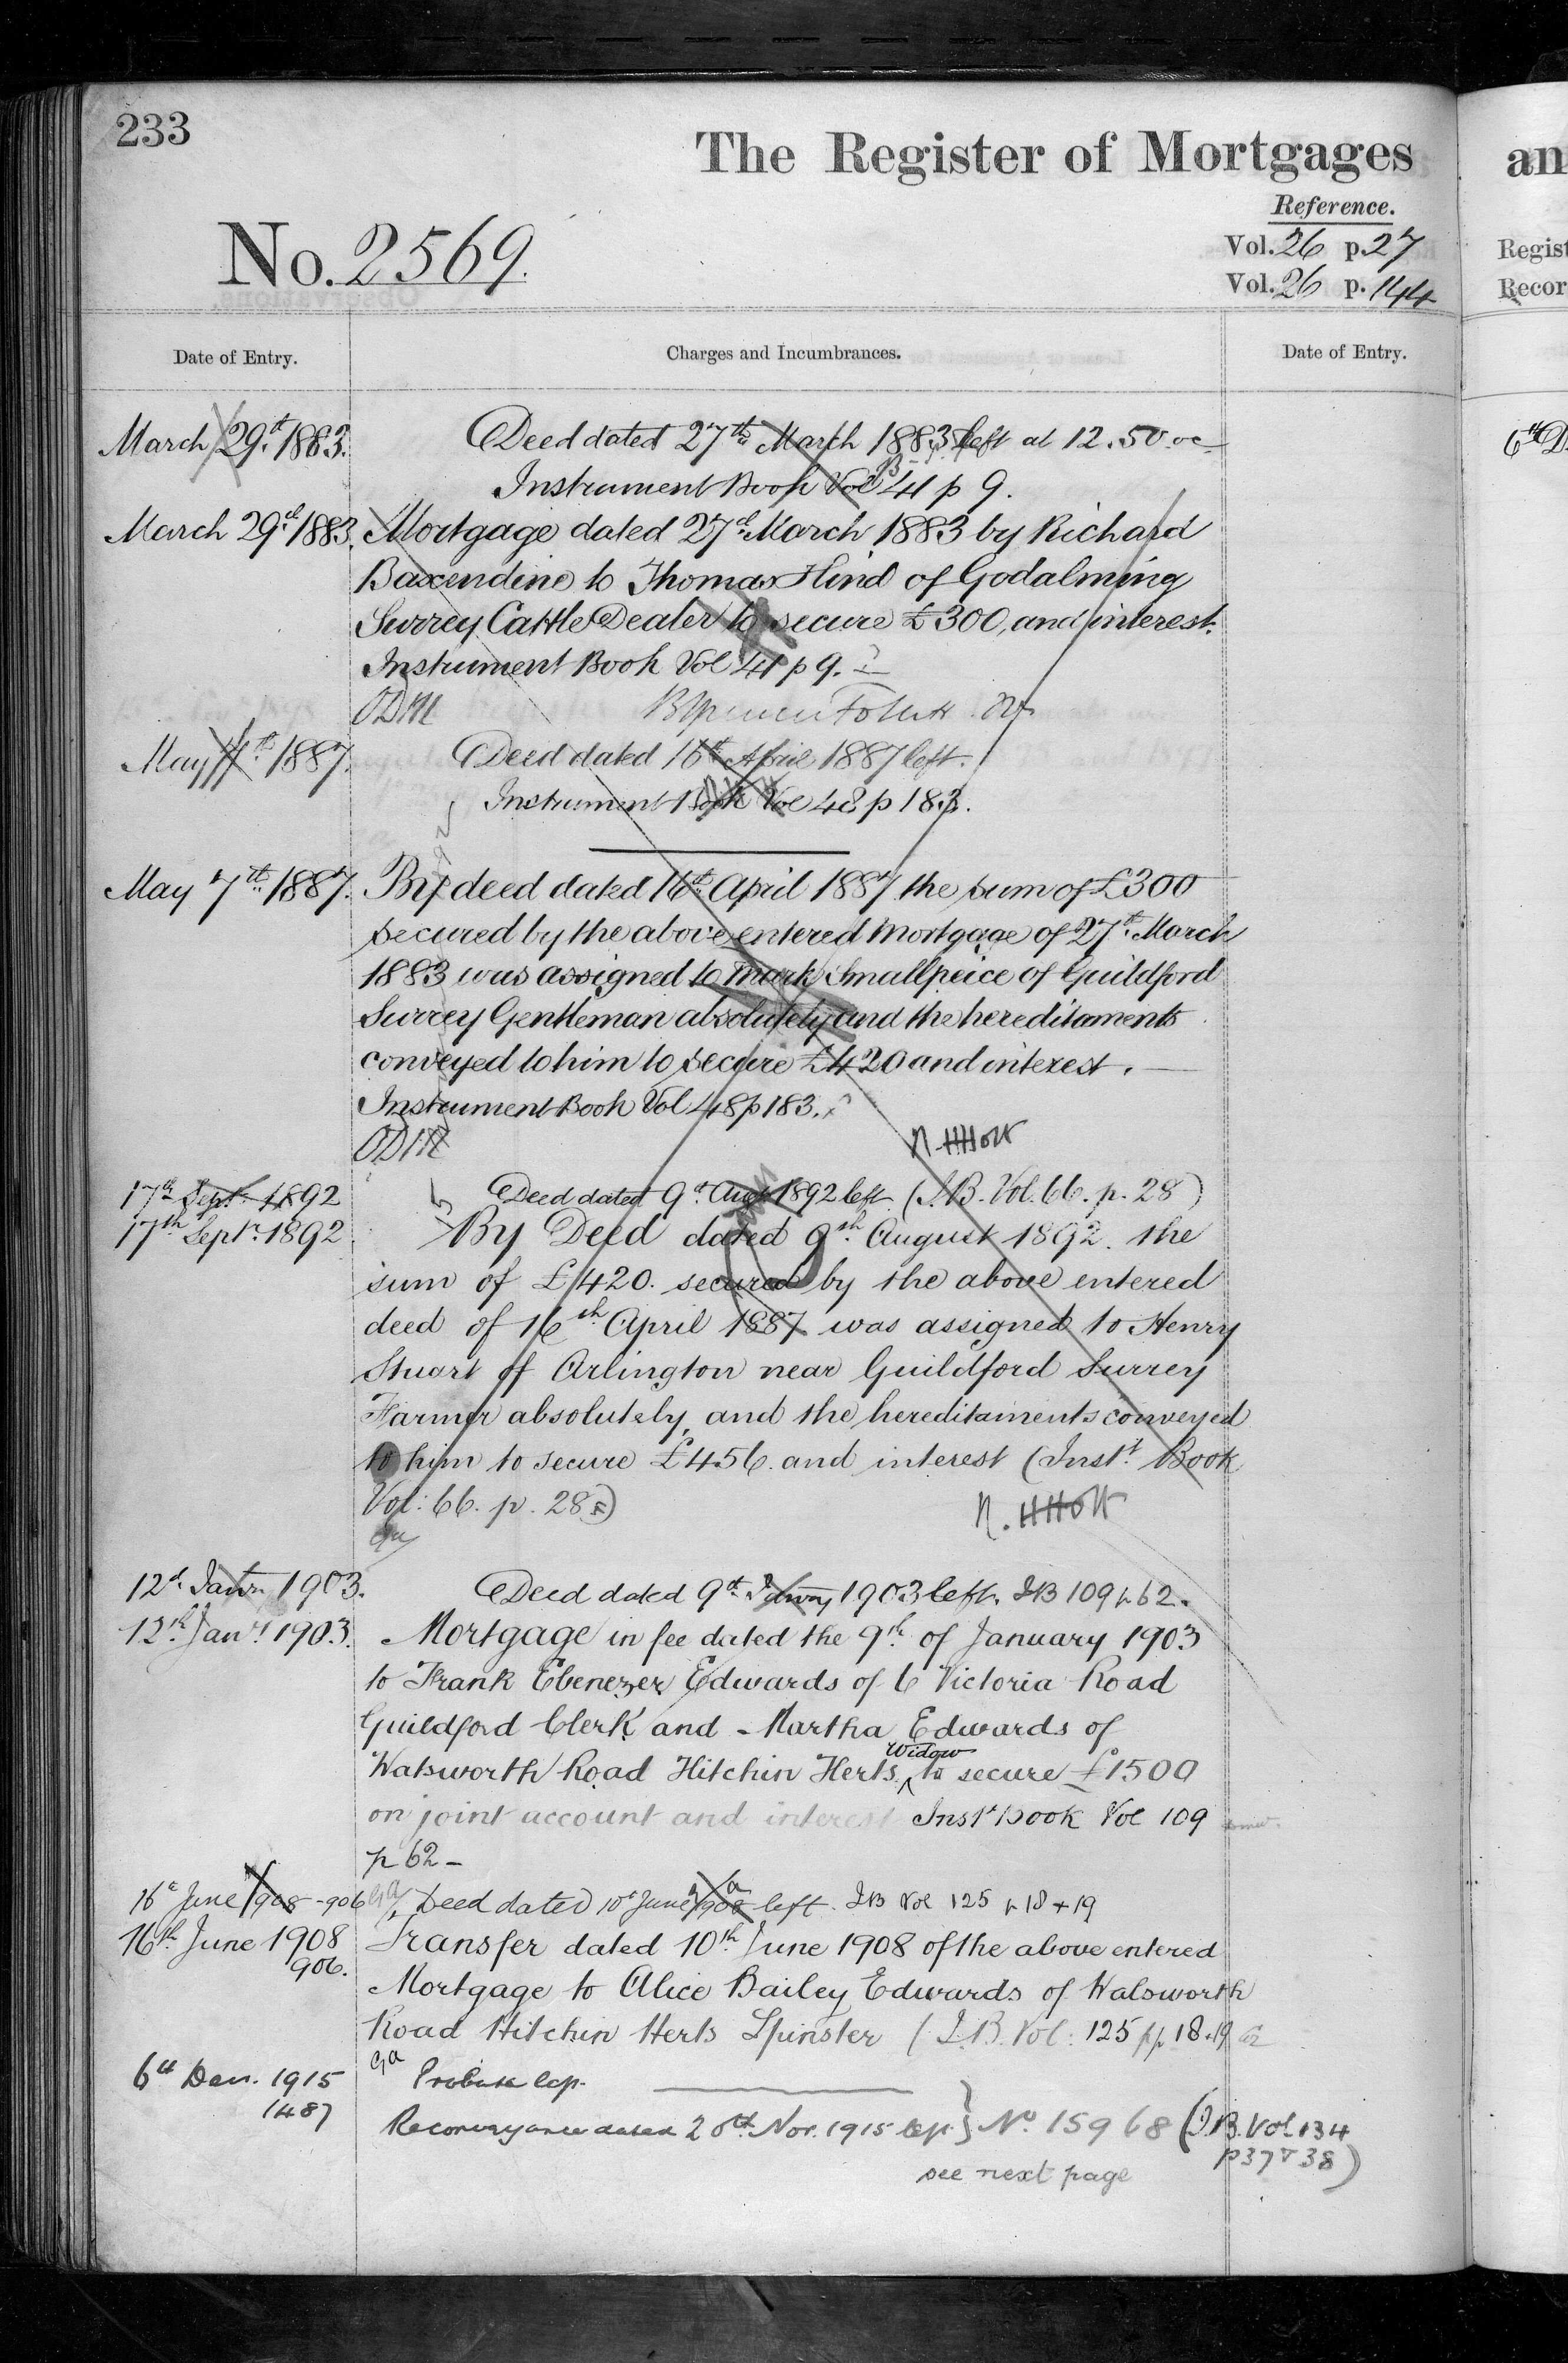 233
The Register of Mortgages
an
Reference.
No. 2569.
Vol. 26 p. 27
Vol. 26 p. 144
Regist
Recor
Date of Entry.
Charges and Incumbrances.
Date of Entry.
March 29th 1883. Deed dated 27th March 1883 left at 12.50
Instrument Book Vol 41 p 9.
March 29th 1883. Mortgage dated 27th March 1883 by Richard
Baxendine to Thomas Hind of Godalming
Surrey Cattle Dealer to secure £300, and interest.
Instrument Book Vol 41 p 9.
ODM
May 7th 1887. Deed dated 16th April 1887 left.
Instrument Book Vol 48 p 183.
May 7th 1887. By deed dated 16th April 1887 the sum of £300
secured by the above entered Mortgage of 27th March
1883 was assigned to Mark Smallpeice of Guildford
Surrey Gentleman absolutely and the hereditaments
conveyed to him to secure £420 and interest.
Instrument Book Vol 48 p 183.
ODM
N. H Holt
17th Sept. 1892 Deed dated 9th Aug 1892 left (I.B. Vol. 66. p. 28)
17th Sepr. 1892 By Deed dated 9th August 1892. the
sum of £420. secured by the above entered
deed of 16th April 1887 was assigned to Henry
Stuart of Arlington near Guildford Surrey
Farmer absolutely, and the hereditaments conveyed
to him to secure £456. and interest (Inst. Book
Vol: 66. p. 28)
N. H Holt
12th Jany 1903. Deed dated 9th Jany 1903 left. IB 109 p 62.
12th Jany 1903. Mortgage in fee dated the 9th of January 1903
to Frank Ebenezer Edwards of 6 Victoria Road
Guildford Clerk and Martha Edwards of
Walsworth Road Hitchin Herts Widow to secure £1500
on joint account and interest Inst Book Vol 109
p 62 -
16th June 1908 - 906 Deed dated 10th June 1908 left. IB Vol 125 p 18 + 19
16th June 1908 Transfer dated 10th June 1908 of the above entered
906.
Mortgage to Alice Bailey Edwards of Walsworth
Road Hitchin Herts Spinster (I.B. Vol: 125 pp 18+19
6th Dec. 1915 Probate left.
1487
Reconveyance dated 20th Nov. 1915 left } No. 15968 (I.B. Vol 134
p 37 & 38)
see next page
6th D